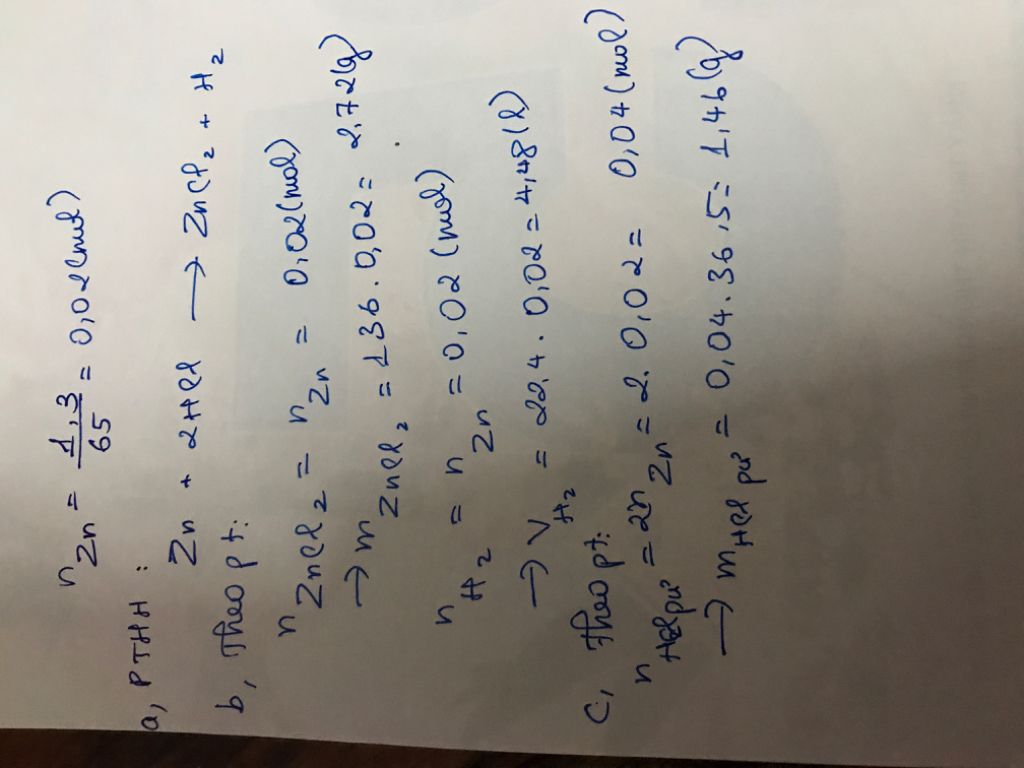 n Zn = 1,3/65 = 0,02(mol)
a, PTHH :
Zn + 2HCl → ZnCl2 + H2
b, Theo pt:
n ZnCl2 = n Zn = 0,02(mol)
→ m ZnCl2 = 136 . 0,02 = 2,72(g)
n H2 = n Zn = 0,02 (mol)
→ V H2 = 22,4 . 0,02 = 4,48(l)
c, Theo pt:
n HCl pư = 2n Zn = 2. 0,02 = 0,04(mol)
→ m HCl pư = 0,04. 36,5 = 1,46(g)